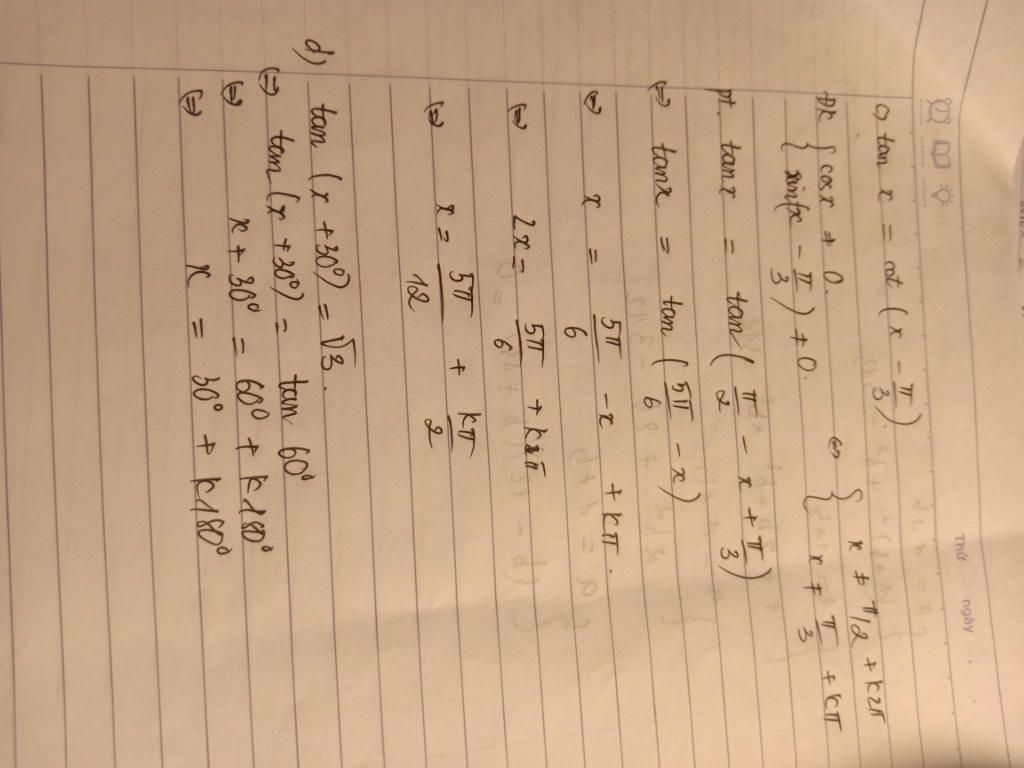 Thứ ngày
c, tan x = cot (x - π/3)
ĐK { cosx ≠ 0. ⇔ { x ≠ π/2 + k2π
{ sin(x - π/3) ≠ 0. { x ≠ π/3 + kπ
pt. tan x = tan (π/2 - x + π/3)
⇔ tanx = tan (5π/6 - x)
⇔ x = 5π/6 - x + kπ.
⇔ 2x = 5π/6 + kπ
⇔ x = 5π/12 + kπ/2
d) tan (x + 30°) = √3.
⇔ tan (x + 30°) = tan 60°
⇔ x + 30° = 60° + k180°
⇔ x = 30° + k180°